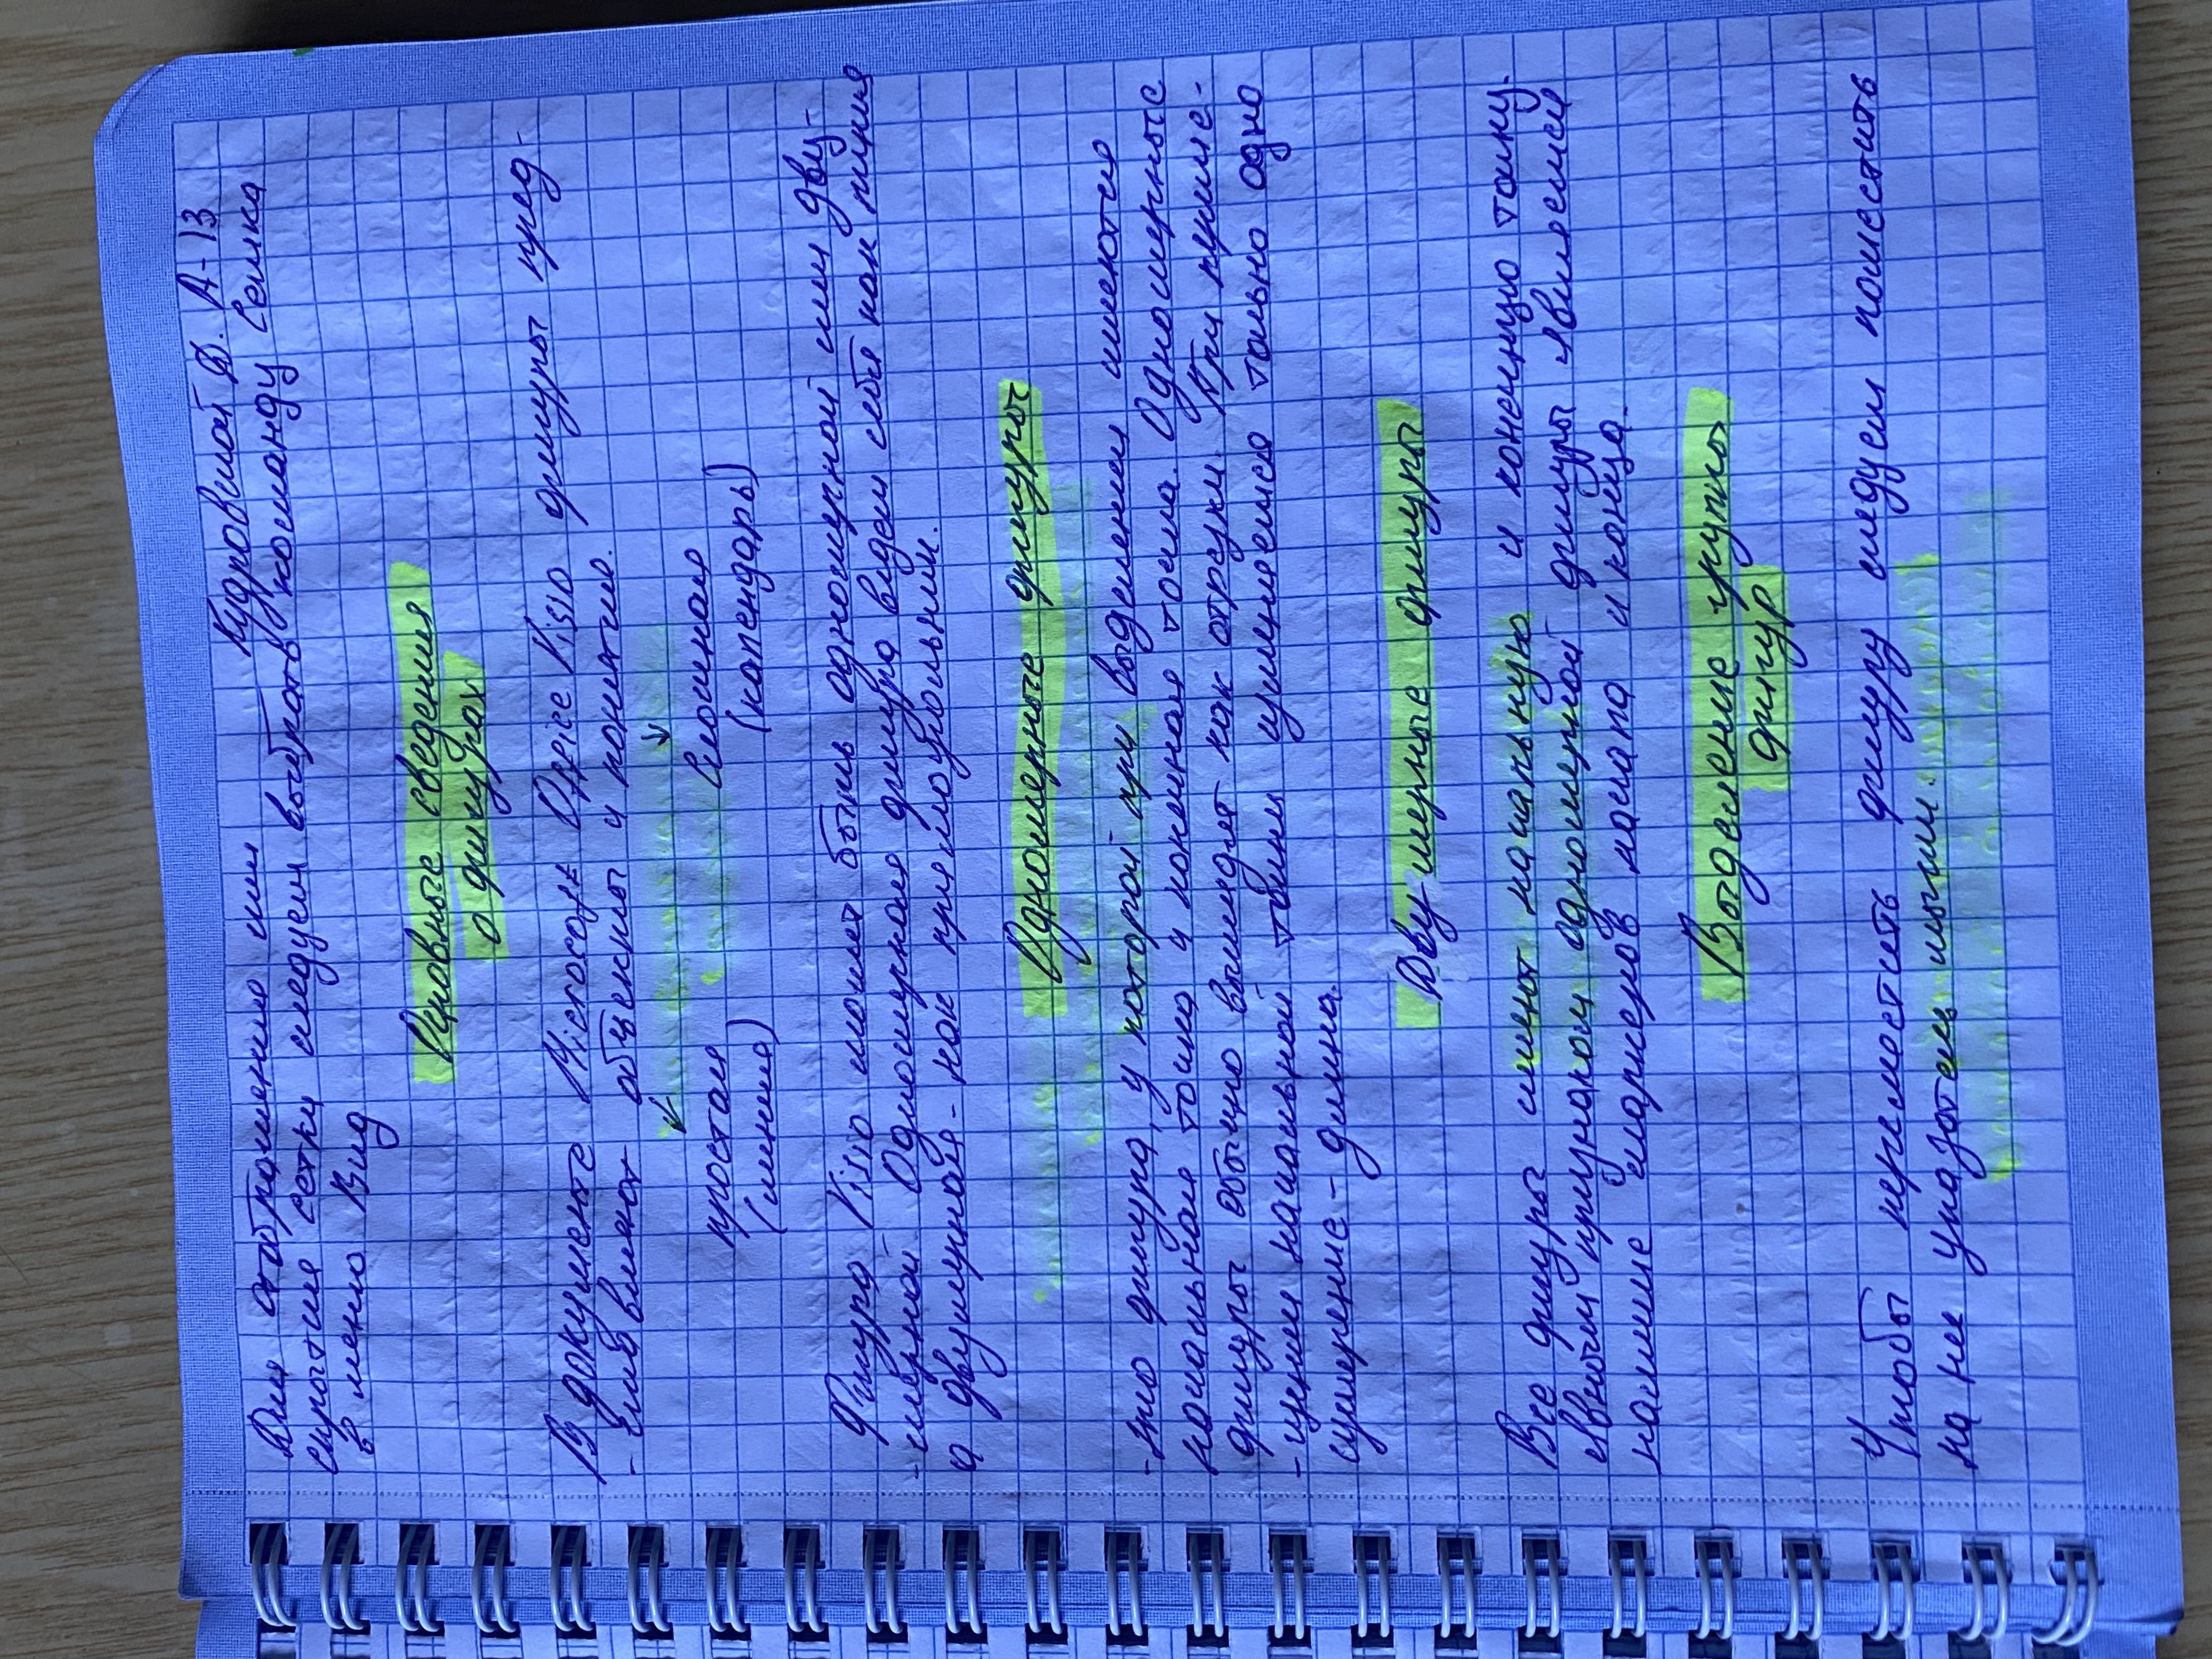 Кудровской Д. А-13
Для отображения или
скрытия сетки следует выбрать команду Сетка
в меню Вид
Основные сведения
о фигурах
В документе Microsoft Office Visio фигуры пред-
-ставляют объекты и понятие.
простая
Сложная
(линия)
(календарь)
Фигура Visio может быть одномерной или дву-
-мерной. Одномерная фигура ведет себя как линия
а двумерная - как прямоугольник.
Одномерные фигуры
-это фигура, у которой при выделении имеются
начальная точка и конечная точка. Одномерные
фигуры обычно выглядят как отрезки. При пуме-
-щении начальной точки изменяется только одно
измерение - длина.
Двумерные фигуры
Все фигуры имеют начальную и конечную точку.
явным признаком одномерной фигуры является
наличие маркеров начала и конца.
Выделение группы
фигур
Чтобы переместить фигуру следует поместить
на нее указатель мыши.